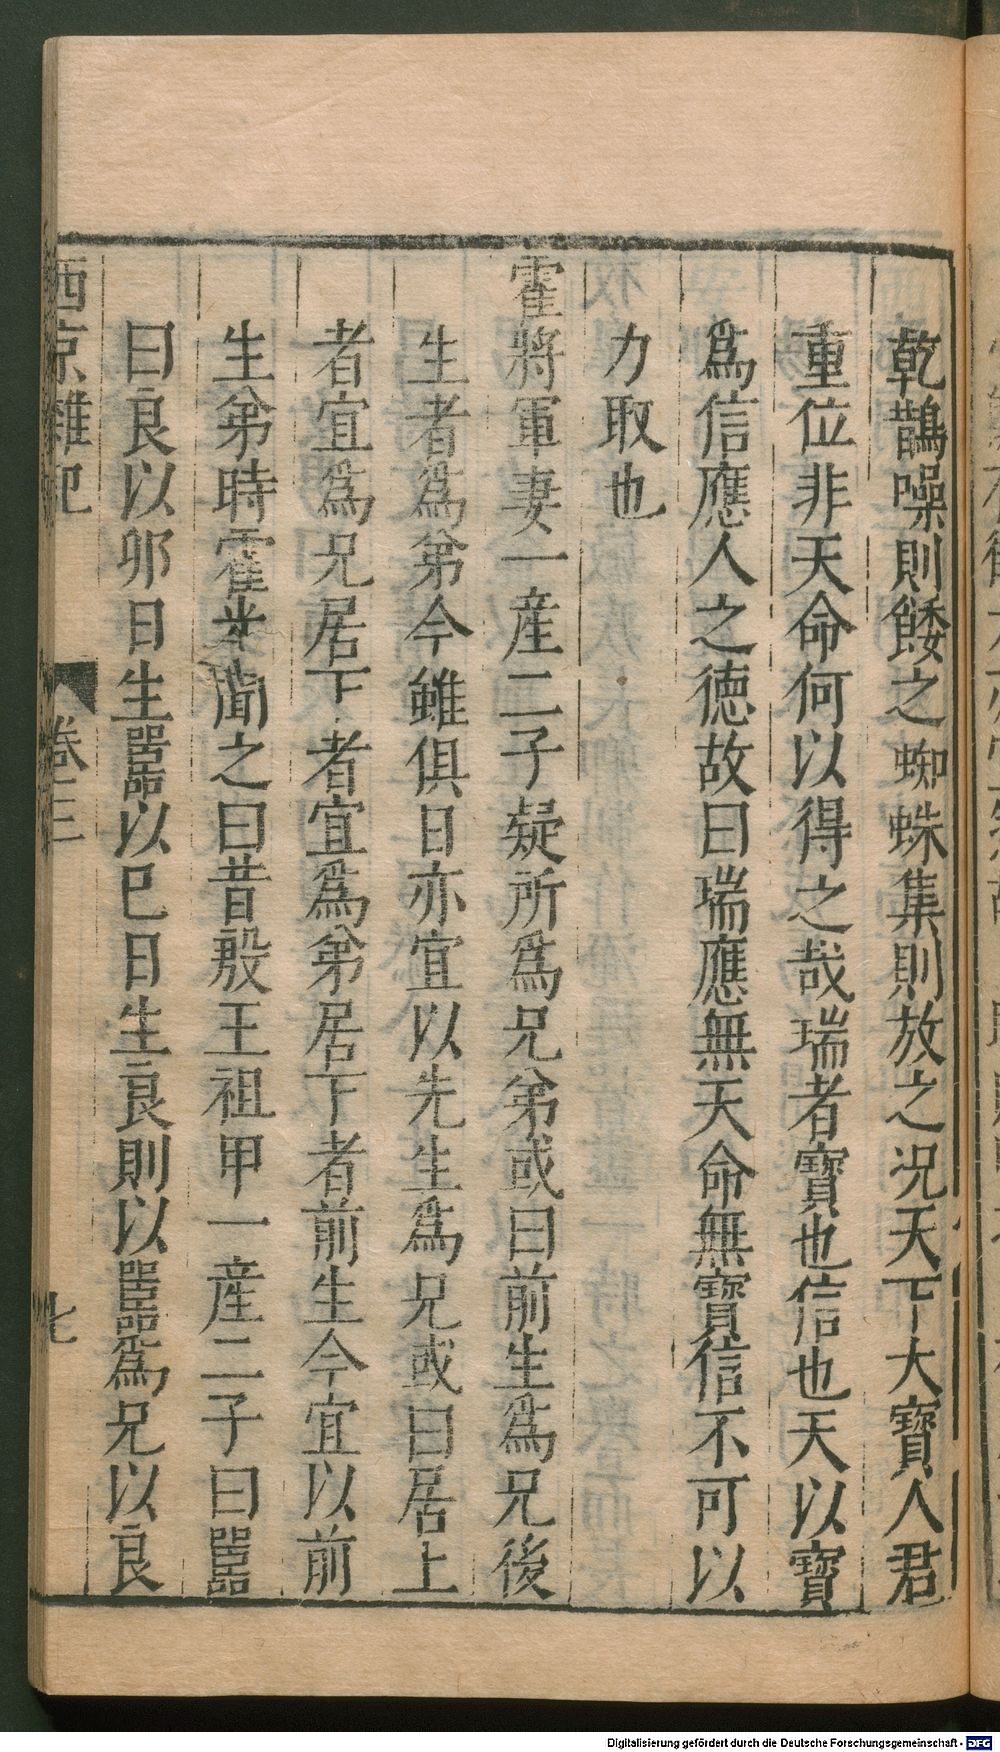 乾鵲噪則餧之蜘蛛集則放之况天下大寶人君
重位非天命何以得之哉瑞者寶也信也天以寶
爲信應人之德故曰瑞應無天命無寶信不可以
力取也
霍將軍妻一産二子疑所爲兄弟或曰前生爲兄後
生者爲弟今雖俱日亦宜以先生爲兄或曰居上
者宜爲兄居下者宜爲弟居下者前生今宜以前
生弟時霍光聞之曰昔殷王祖甲一産二子曰嚚
曰良以卯日生嚚以巳日生良則以嚚爲兄以良
西京雜記
卷三
七
Digitalisierung gefördert durch die Deutsche Forschungsgemeinschaft - DFG